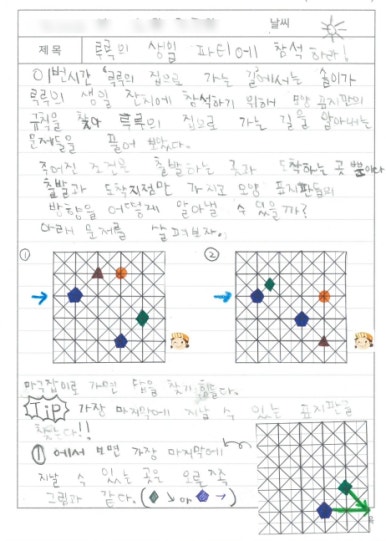 날씨
제목 툭툭의 생일 파티에 참석하라!
이번시간 툭툭의 집으로 가는 길에서는 솔이가
툭툭의 생일 잔치에 참석하기 위해 모양 표지판의
규칙을 찾아 툭툭의 집으로 가는 길을 알아내는
문제들을 풀어 보았다.
주어진 조건은 출발하는 곳과 도착하는 곳 뿐이다
출발과 도착지점만 가지고 모양 표지판들의
방향을 어떻게 알아낼 수 있을까?
아래 문제를 살펴보자.
① ②
마구잡이로 가면 답을 찾기 힘들다.
TiP 가장 마지막에 지날 수 있는 표지판을
찾는다!!
①에서 보면 가장 마지막에
지날 수 있는 곳은 오른쪽
그림과 같다. ( ↘ or → )